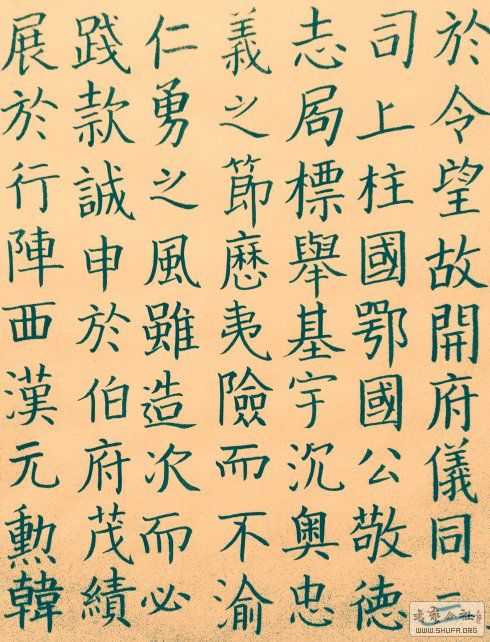 於令望故開府儀同三
司上柱國鄂國公敬德
志局標舉基宇沉奧忠
義之節歷夷險而不渝
仁勇之風雖造次而必
踐款誠申於伯府茂績
展於行陣西漢元勲韓
WWW.SHUFA.ORG